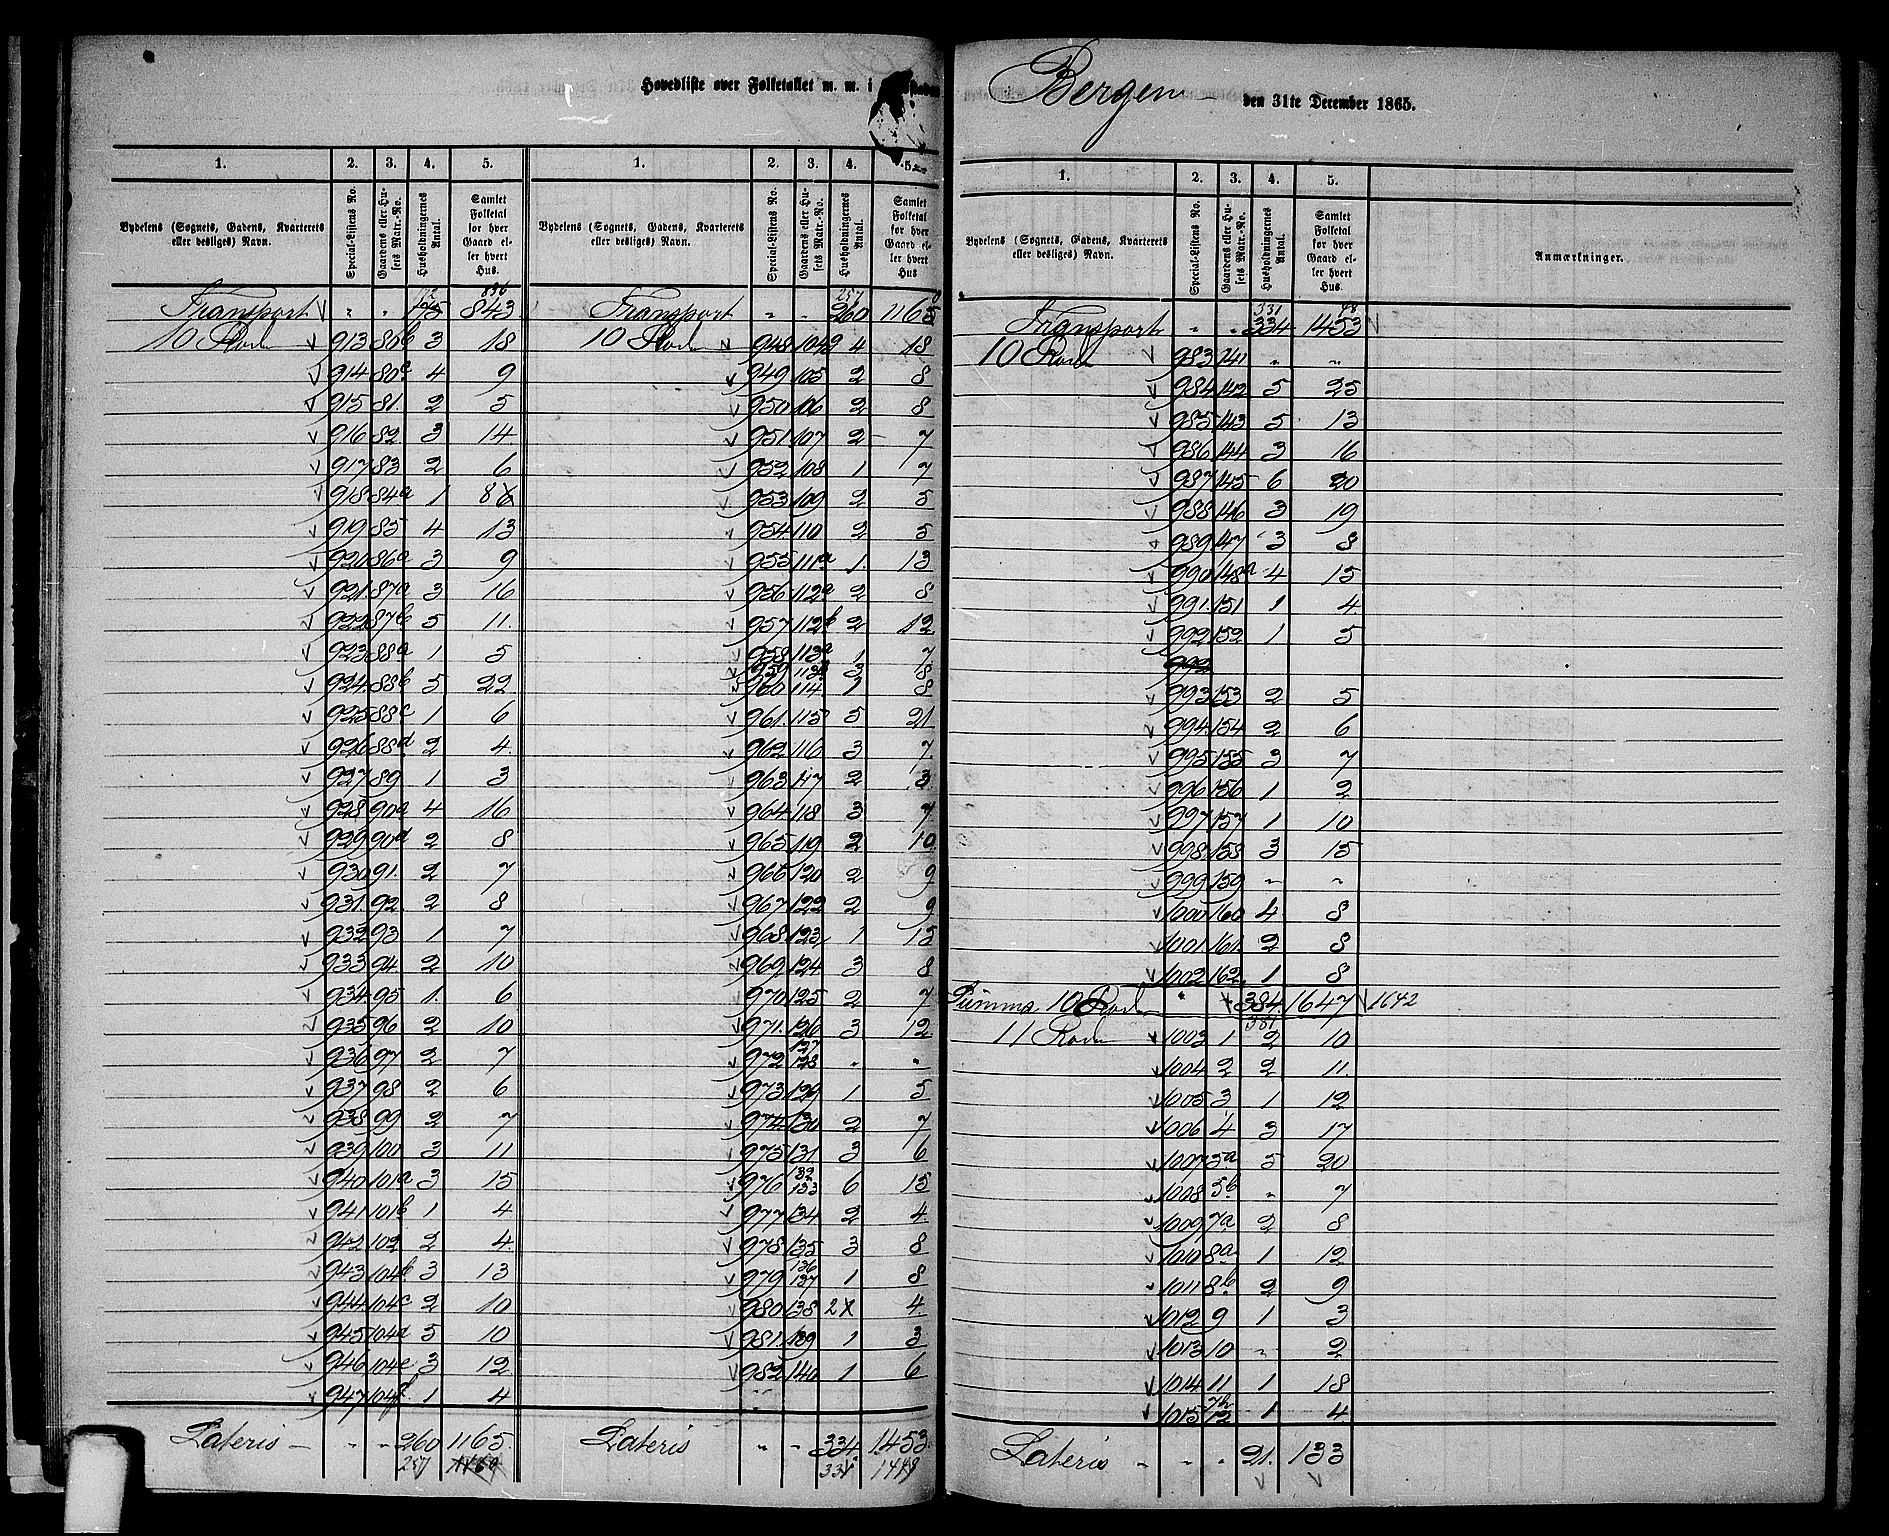 Hovedliste over Folketallet m. m. i
Bergen den 31te December 1865.
1. 2. 3. 4. 5. 1. 2. 3. 4. 5.
Bydelens (Sognets, Gadens, Kvarterets eller desliges) Navn. Special-Listens No. Gaardens eller Husets Matr.-No. Husholdningernes Antal. Samlet Folketal for hver Gaard eller hvert Hus.
Bydelens (Sognets, Gadens, Kvarterets eller desliges) Navn. Special-Listens No. Gaardens eller Husets Matr.-No. Husholdningernes Antal. Samlet Folketal for hver Gaard eller hvert Hus
Transport " " 175 843
10 Rode 913 80b 3 18
914 80c 4 9
915 81. 2 5
916 82 3 14
917 83 2 6
918 84a 1 8 6
919 85 4 13
920 86a 3 9
921. 87a 3 16
922 87b 5 11.
923 88a 1 5
924. 88b 5 22
925 88c 1 6
926 88d 2 4.
927 89 1 3
928 90a 4 16
929 90d 2 8
930 91. 2 7
931. 92. 2 8
932 93 1 7
933 94 2 10
934. 95 1. 6
935 96 2 10
936 97 2 7
937 98 2 6
938 99 2 7
939 100 3 11
940 101a 3 15
941 101b 1 4
942 102 2 4.
943 104b 3 13
944. 104c 2 10
945 104d 5 10
946 104e 3 12
947 104f. 1 4
Lateris " " 260 1165.
257 1160
Transport " " 260 1165
257
10 Rode 948 104g 4 18
949 105 2 8
950 106 2 8
951. 107 2 7
952 108 1 7
953 109 2 5
954. 110 2 5
955 111a 1. 13
956 112a 2 8
957 112b 2 12
958 113a 1 7
959 113b 3 8
960 114 1 8
961. 115 5 21
962 116 3 7.
963 117 2 3.
964. 118 3 7
965 119 2 10.
966 120 2 9
967 122 2 9
968 123 1 15
969 124 3 8
970 125 2 7
971. 126 3 12
972 127 128 " "
973 129 1 5
974 130 2 7
975 131 3 6
976 132 133 6 15
977 134 2 4.
978 135 3 8
979 136 137 1 8
980 138 2 4.
981. 139 1 3
982 140 1 6
Lateris " " 334 1453
331 1448
1. 2. 3. 4. 5.
Bydelens (Sognets, Gadens, Kvarterets eller desliges) Navn. Special-Listens No. Gaardens eller Husets Matr.-No. Husholdningernes Antal. Samlet Folketal for hver Gaard eller hvert Hus. Anmærkninger.
331 48
Transport " " 334 1453
10 Rode 983 141 " "
984 142 5 25
985 143 5 13
986 144 3 16
987 145 6 20
988 146 3 19
989 147 3 8
990 148a 4 15
991. 151 1 4.
992 152 1 5
992
993 153 2 5
994. 154 2 6
995 155 3 7
996 156 1 2
997 157 1 10
998 158 3 15
999 159 " "
1000 160 4 8
1001. 161 2 8
1002 162. 1 8
Summa 10 Rode " 384. 1647 1642
381
11 Rode 1003 1 2 10
1004 2 2 11.
1005 3 1 12
1006 4 3 17
1007 5a 5 20
1008 5b " 7
1009 7a 2 8
1010 8a 1 12
1011 8b 2 9
1012 9 1 3
1013 10 " 2
1014 11 1 18
1015 7b 12 1 4
Lateris " " 21. 133